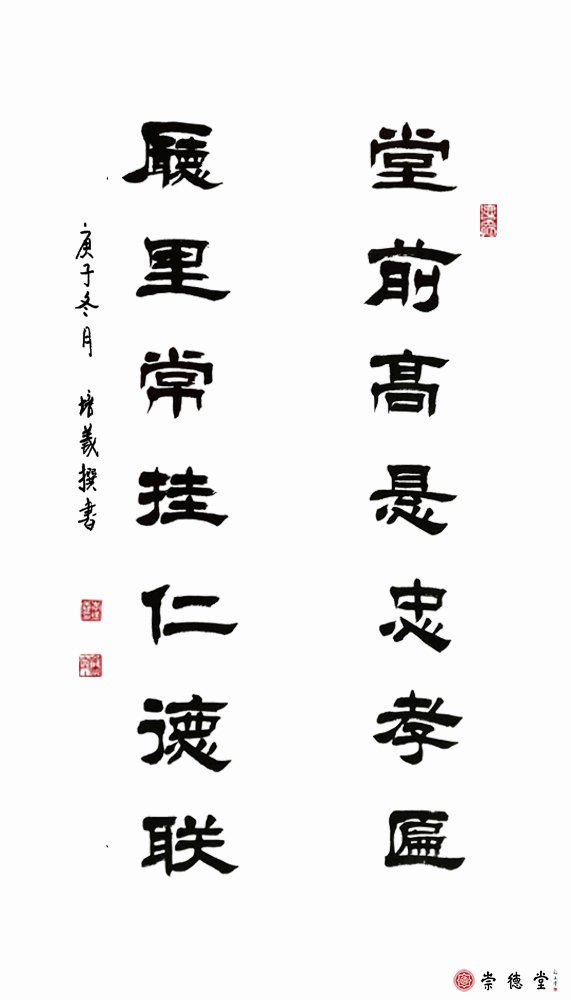 堂前髙悬忠孝匾
廳里常挂仁德联
庚子冬月 培義撰書
崇德堂